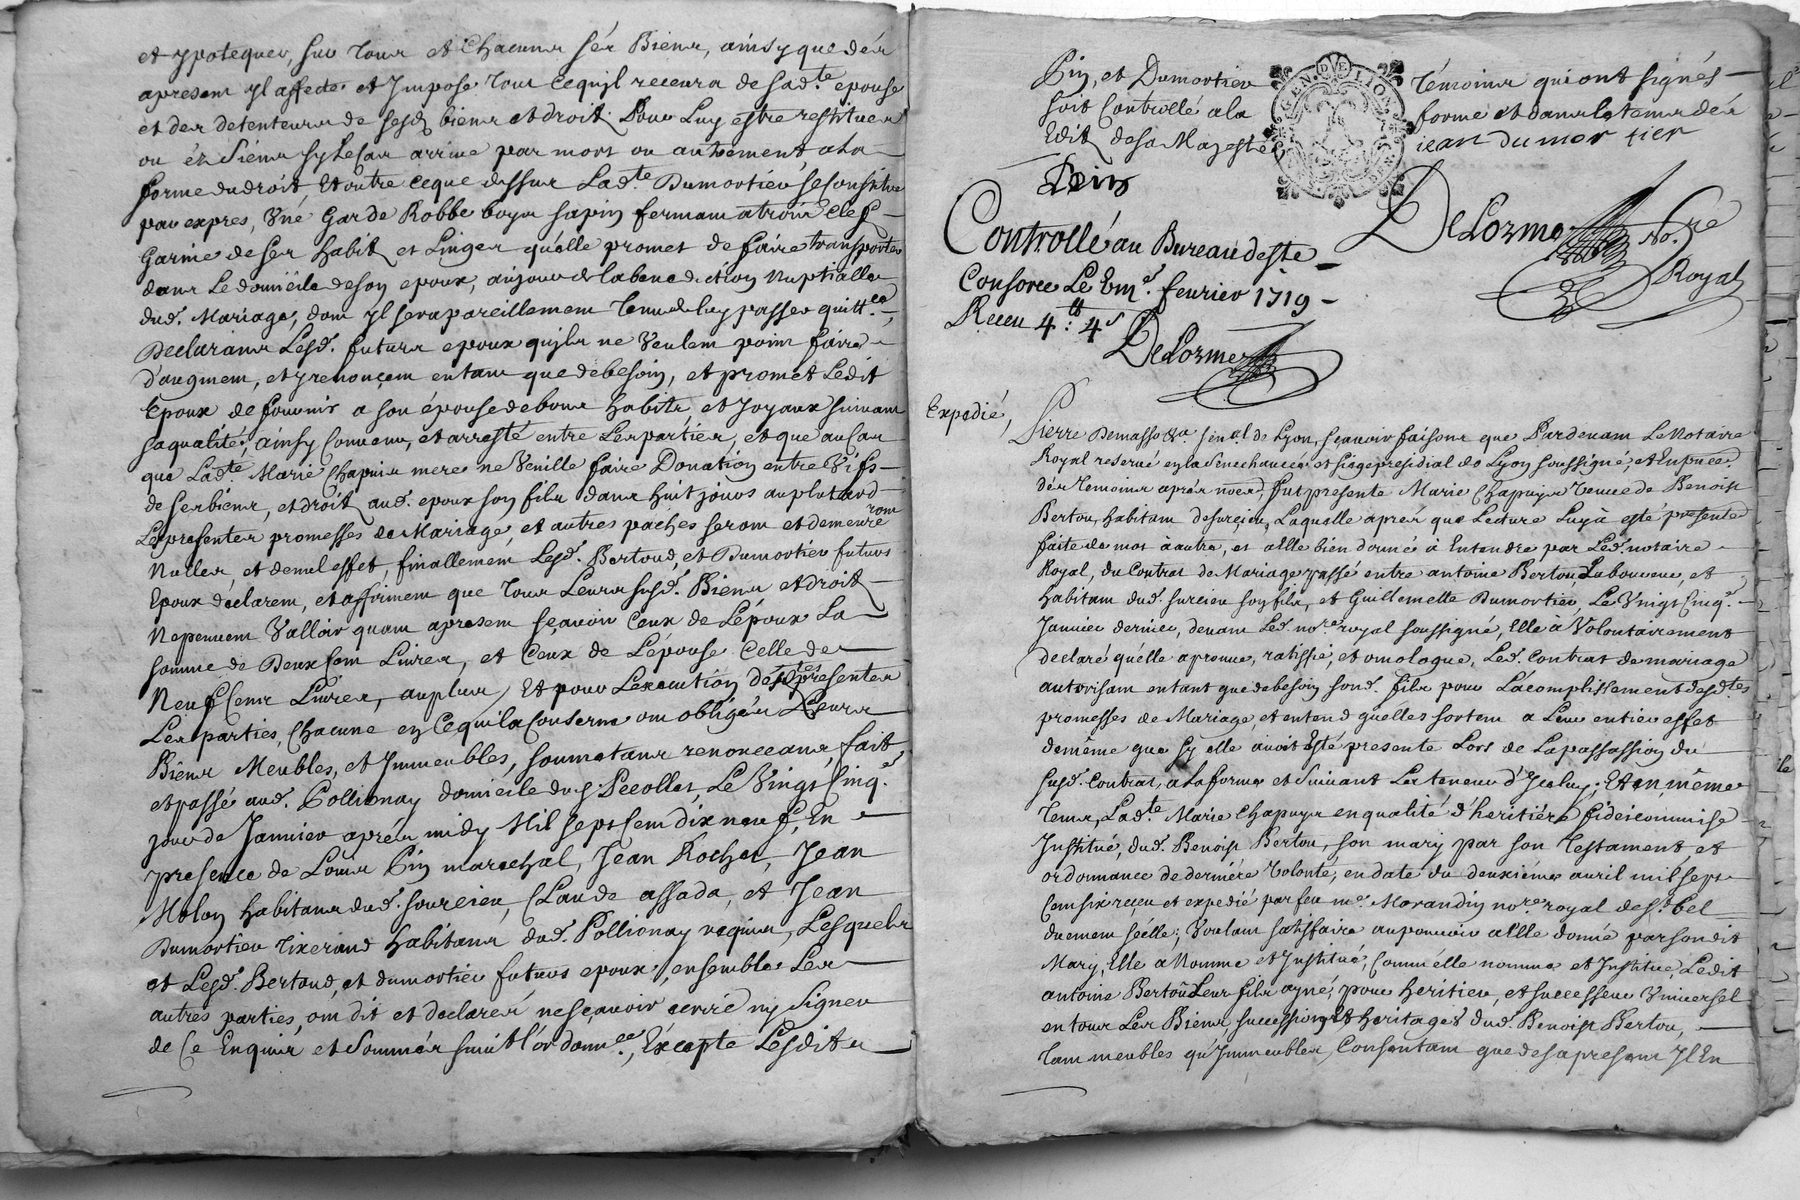 et ypotequer, sur tous et Chacuns sés Biens, ainsy que dés
apresent yl affecte et Impose tout cequil recevra de sad.te epouse
et des detenteurs de sesd biens et droit. Pour Luy estre restitués
ou éz siéns sy le Cas arrive par mort ou autrement, ala
forme du droit Et outre ceque dessus Lad.te Dumortier se Constitue
par expres, Une Garde Robbe boys sapin fermant a trois Clefs
Garnie de ses habit et Linges quélle promet de faire transporter
dans Le domicile de son epoux, aujour de la benediction Nuptialle
dud. Mariage, dont yl sera pareillement tenu de luy passer quitt.ce,
Declarans Lesd. futurs epoux quils ne Veulent point faire
d'augment, et y renonçent entant que de besoin, et promet Ledit
Epoux de fournir a son épouse de bons habits, et Joyaux suivant
sa qualité; ainsy Convenu, et arresté entre Les parties, et que au Cas
que Lad.te Marie Chapuis mere ne Veuille faire Donation entre Vifs
de ses biens, et droit aud. epoux son fils dans huit jours au plus tard
Les presentes promesses de Mariage, et autres paches seront et demeureront
Nulles, et de nul effet, finallement Lesd. Bertoud, et Dumortier futurs
Epoux déclarent, et affirment que tous Leurs susd. Biens et droit
Ne peuvent Valloir quant apresent sçavoir Ceux de Lépoux La
somme de Deux Cent Livres, et Ceux de Lépouse Celle de
Neuf Cent Livres, au plus, Et pour Lexecution désd.tes presentes
Les parties, Chacune en Cequi la Conserne ont obligées Leurs
Biens Meubles, et Immeubles, soumetans, renonceans, fait
et passé aud. Pollionay domicile du s.r Pecollet, Le Vingt Cinq.e
jour de Janvier aprés midy Mil sept Cent dix neuf, En
presence de Louis Pin marechal, Jean Rochet, Jean
Molon habitans dud. sourcieu, Claude assada, et Jean
Dumortier tixerand habitans dud. Pollionay requis, Lesquels
et Lesd. Bertoud, et dumortier futurs epoux, ensemble Les
autres parties, ont dit et declarés ne sçavoir ecrire ny signer
de Ce Enquis et sommés suiv.t L'ordonn.ce, Excepté Lesdits
Pin, et Dumortier témoins qui ont signés
soit Controllé a la forme et dans le tems dés
Edit de sa Majesté jean dumortier
Pin
DeLorme No.re Royal
Controllé au Bureau deste
Consorce Le fevrier 1719
Receu 4.tt : 4.s
DeLorme
Expedié,
Pierre Demasso Sén.al de Lyon, sçavoir faisons que Pardevant Le Notaire
Royal reservé en la Senechaucée et siege presidial de Lyon soussigné, et En pnce.
dés temoins aprés només, fut presente Marie Chapuys Veuve de Benoist
Bertou, habitant de surcieu, Laquelle aprés que Lecture Luy à esté presente
faite de mot à autre, et a Elle bien donné à Entendre par Led. notaire
Royal, du Contrat de Mariage passé entre antoine Bertou Laboureur, et
habitant dud. surcieu son fils, et Guillemette Dumortier, Le Vingt Cinq.e
Janvier dernier, devant Led. no.re royal soussigné, Elle à Volontairement
declaré quélle aprouve, ratiffie, et omologue, Led. Contrat de mariage
autorisant entant que de besoin sond. fils pour Lácomplissement desd.tes
promesses de Mariage, et entend quelles sortent a Leur entier effet
de même que sy elle avoit Esté presente Lors de La passassion du
susd. Contrat, a la forme et suivant Les teneur d'Jceluy; Et en même
tems, Lad.te Marie Chapuys en qualité d'heritiére fideicommise
Jnstitué, dud. Benoist Bertou, son mary par son testament, et
ordonnance de derniére Volonté, en date du deuxiéme avril mil sept
Cent six reçeu et expedié par feu me. Morandin no.re royal de s.t bel
duement séelle; Voulant satisfaire au pouvoir a Elle donné par sondit
Mary, Elle a Nomme et Jnstitué, Comme élle nomme et Jnstitue, Ledit
antoine Bertou Leur fils ayné, pour heritier, et successeur Universel
en tous Les Biens, successions, Et heritages dud. Benoist Bertou,
tant meubles qu'Jmmeubles, Consentant que des apresent Jl En